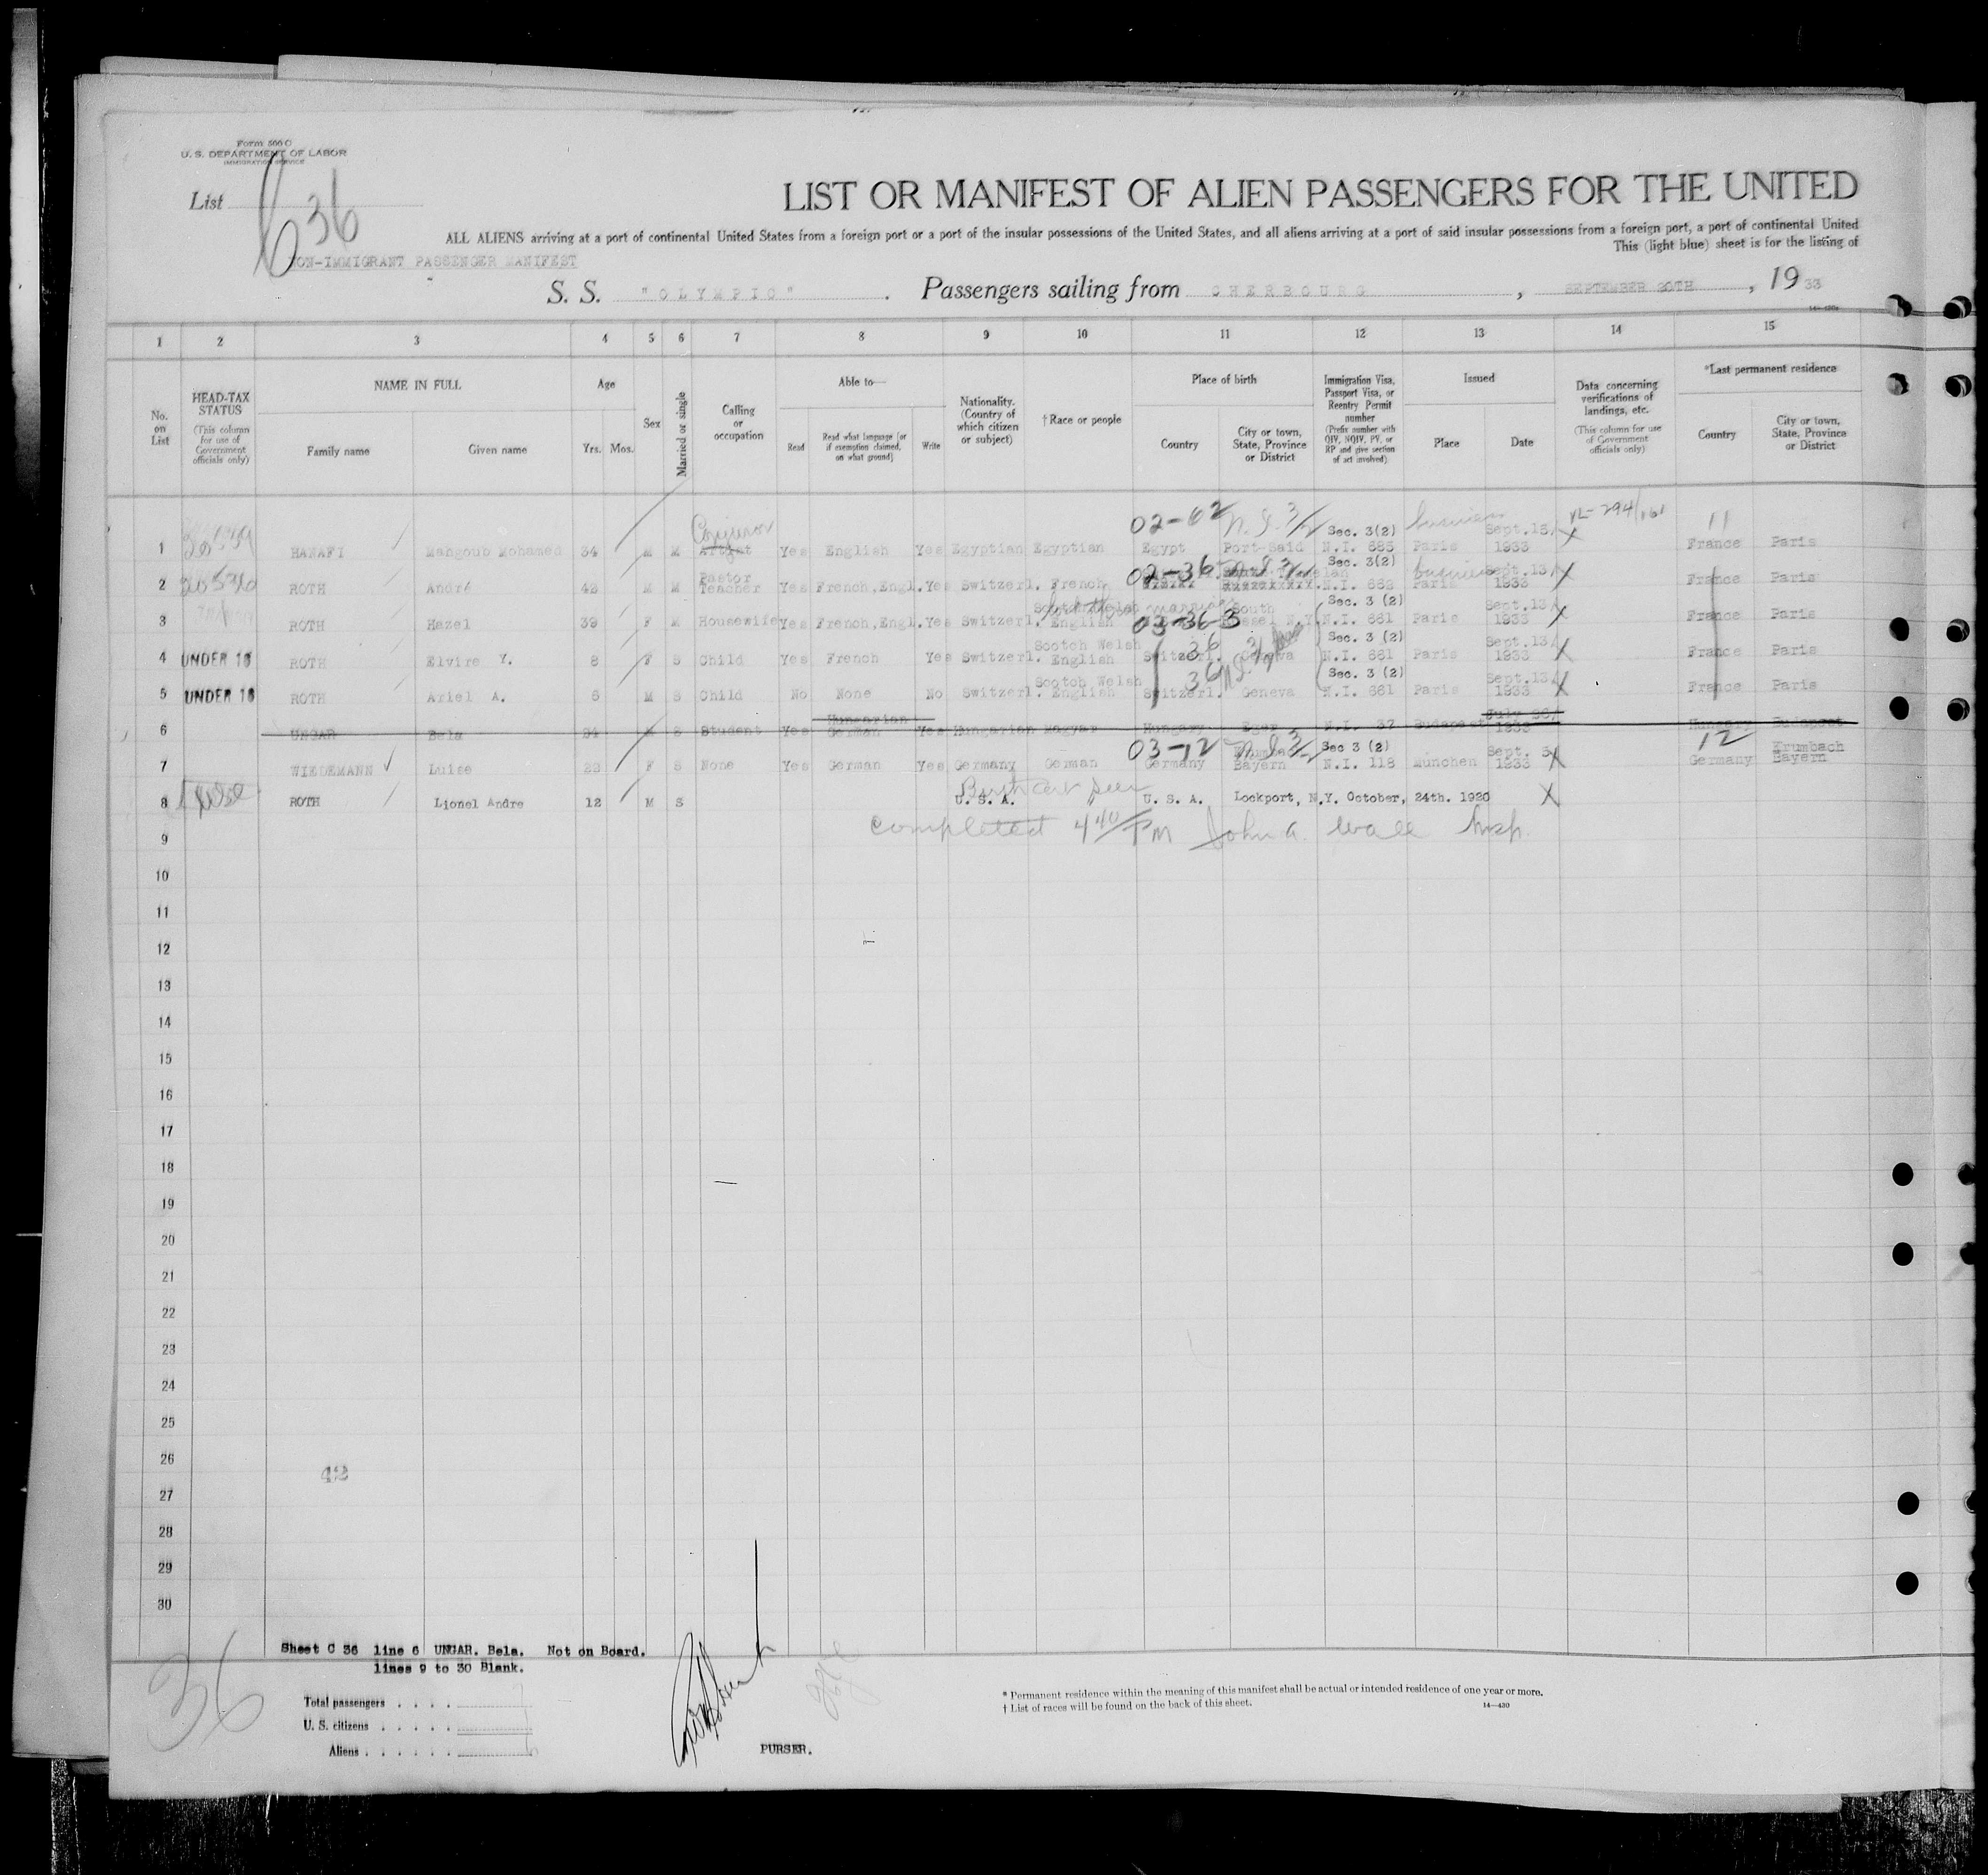 Form 500 C
U. S. DEPARTMENT OF LABOR
IMMIGRATION SERVICE
List 36
LIST OR MANIFEST OF ALIEN PASSENGERS FOR THE UNITED
ALL ALIENS arriving at a port of continental United States from a foreign port or a port of the insular possessions of the United States, and all aliens arriving at a port of said insular possessions from a foreign port, a port of continental United
This (light blue) sheet is for the listing of
NON-IMMIGRANT PASSENGER MANIFEST
S. S. "OLYMPIC". Passengers sailing from CHERBOURG, SEPTEMBER 20TH, 1933
1 2 3 4 5 6 7 8 9 10 11 12 13 14 15
No. on List
HEAD-TAX STATUS (This column for use of Government officials only)
NAME IN FULL Family name Given name
Age Yrs. Mos.
Sex
Married or single
Calling or occupation
Able to— Read Read what language [or if exemption claimed, on what ground] Write
Nationality. (Country of which citizen or subject)
†Race or people
Place of birth Country City or town, State, Province or District
Immigration Visa, Passport Visa, or Reentry Permit number (Prefix number with QIV, NQIV, PV, or RP and give section of act involved)
Issued Place Date
Data concerning verifications of landings, etc. (This column for use of Government officials only)
*Last permanent residence Country City or town, State, Province or District
02-62 N.I. 3/2 business
1 HANAFI Mahgoub Mohamed 34 M M Artist Yes English Yes Egyptian Egyptian Egypt Port-Said Sec. 3(2) N.I. 685 Paris Sept.15/ 1933 X France Paris
2 ROTH André 42 M M Pastor Teacher Yes French,Engl. Yes Switzerl. French 02-36 Sec. 3(2) N.I. 662 Paris business Sept.13/ 1933 X France Paris
3 ROTH Hazel 39 F M Housewife Yes French,Engl. Yes Switzerl. English 03-36-3 South N.Y. Sec. 3 (2) N.I. 661 Paris Sept.13/ 1933 X France Paris
4 UNDER 16 ROTH Elvire Y. 8 F S Child Yes French Yes Switzerl. Scotch Welsh English Switzerl. Geneva Sec. 3 (2) N.I. 661 Paris Sept.13/ 1933 X France Paris
5 UNDER 16 ROTH Ariel A. 6 M S Child No None No Switzerl. Scotch Welsh English Switzerl. Geneva Sec. 3 (2) N.I. 661 Paris Sept.13/ 1933 X France Paris
6 UNGAR Bela 24 M S Student Yes Hungarian German Yes Hungarian Magyar Hungary Eger N.I. 37 Budapest July 26/ 1933 Hungary Budapest
7 WIEDEMANN Luise 22 F S None Yes German Yes Germany German 03-12 Germany Bayern Sec 3 (2) N.I. 118 Munchen Sept. 5/ 1933 X 12 Germany Krumbach Bayern
Birth Cert seen
8 ROTH Lionel Andre 12 M S U. S. A. U. S. A. Lockport, N.Y. October, 24th. 1920 X
completed 4 40/PM John A. Wall Insp.
9
10
11
12
13
14
15
16
17
18
19
20
21
22
23
24
25
26
42
27
28
29
30
Sheet C 36 line 6 UNGAR. Bela. Not on Board.
lines 9 to 30 Blank.
36
Total passengers . . . .
U. S. citizens . . . .
Aliens . . . . . .
PURSER.
* Permanent residence within the meaning of this manifest shall be actual or intended residence of one year or more.
† List of races will be found on the back of this sheet.
14—430